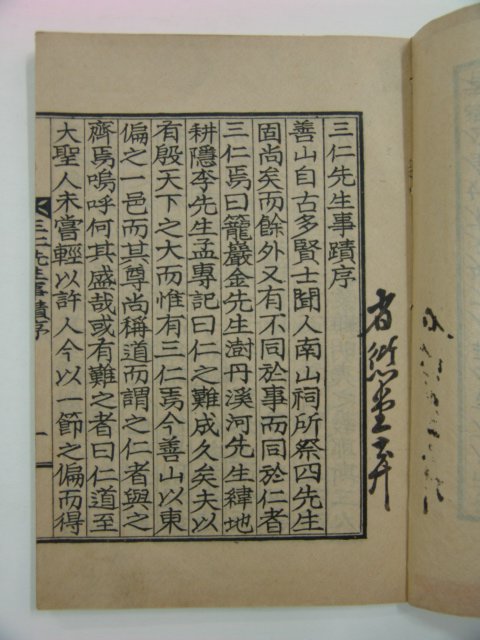 三仁先生事蹟序
善山自古多賢士聞人南山祠所祭四先生
固尚矣而餘外又有不同於事而同於仁者
三仁焉曰籠巖金先生澍丹溪河先生緯地
耕隱李先生孟專記曰仁之難成久矣夫以
有殷天下之大而惟有三仁焉今善山以東
偏之一邑而其尊尚稱道而謂之仁者與之
齊焉嗚呼何其盛哉或有難之者曰仁道至
大聖人未嘗輕以許人今以一節之偏而得
三仁先生事蹟序
一